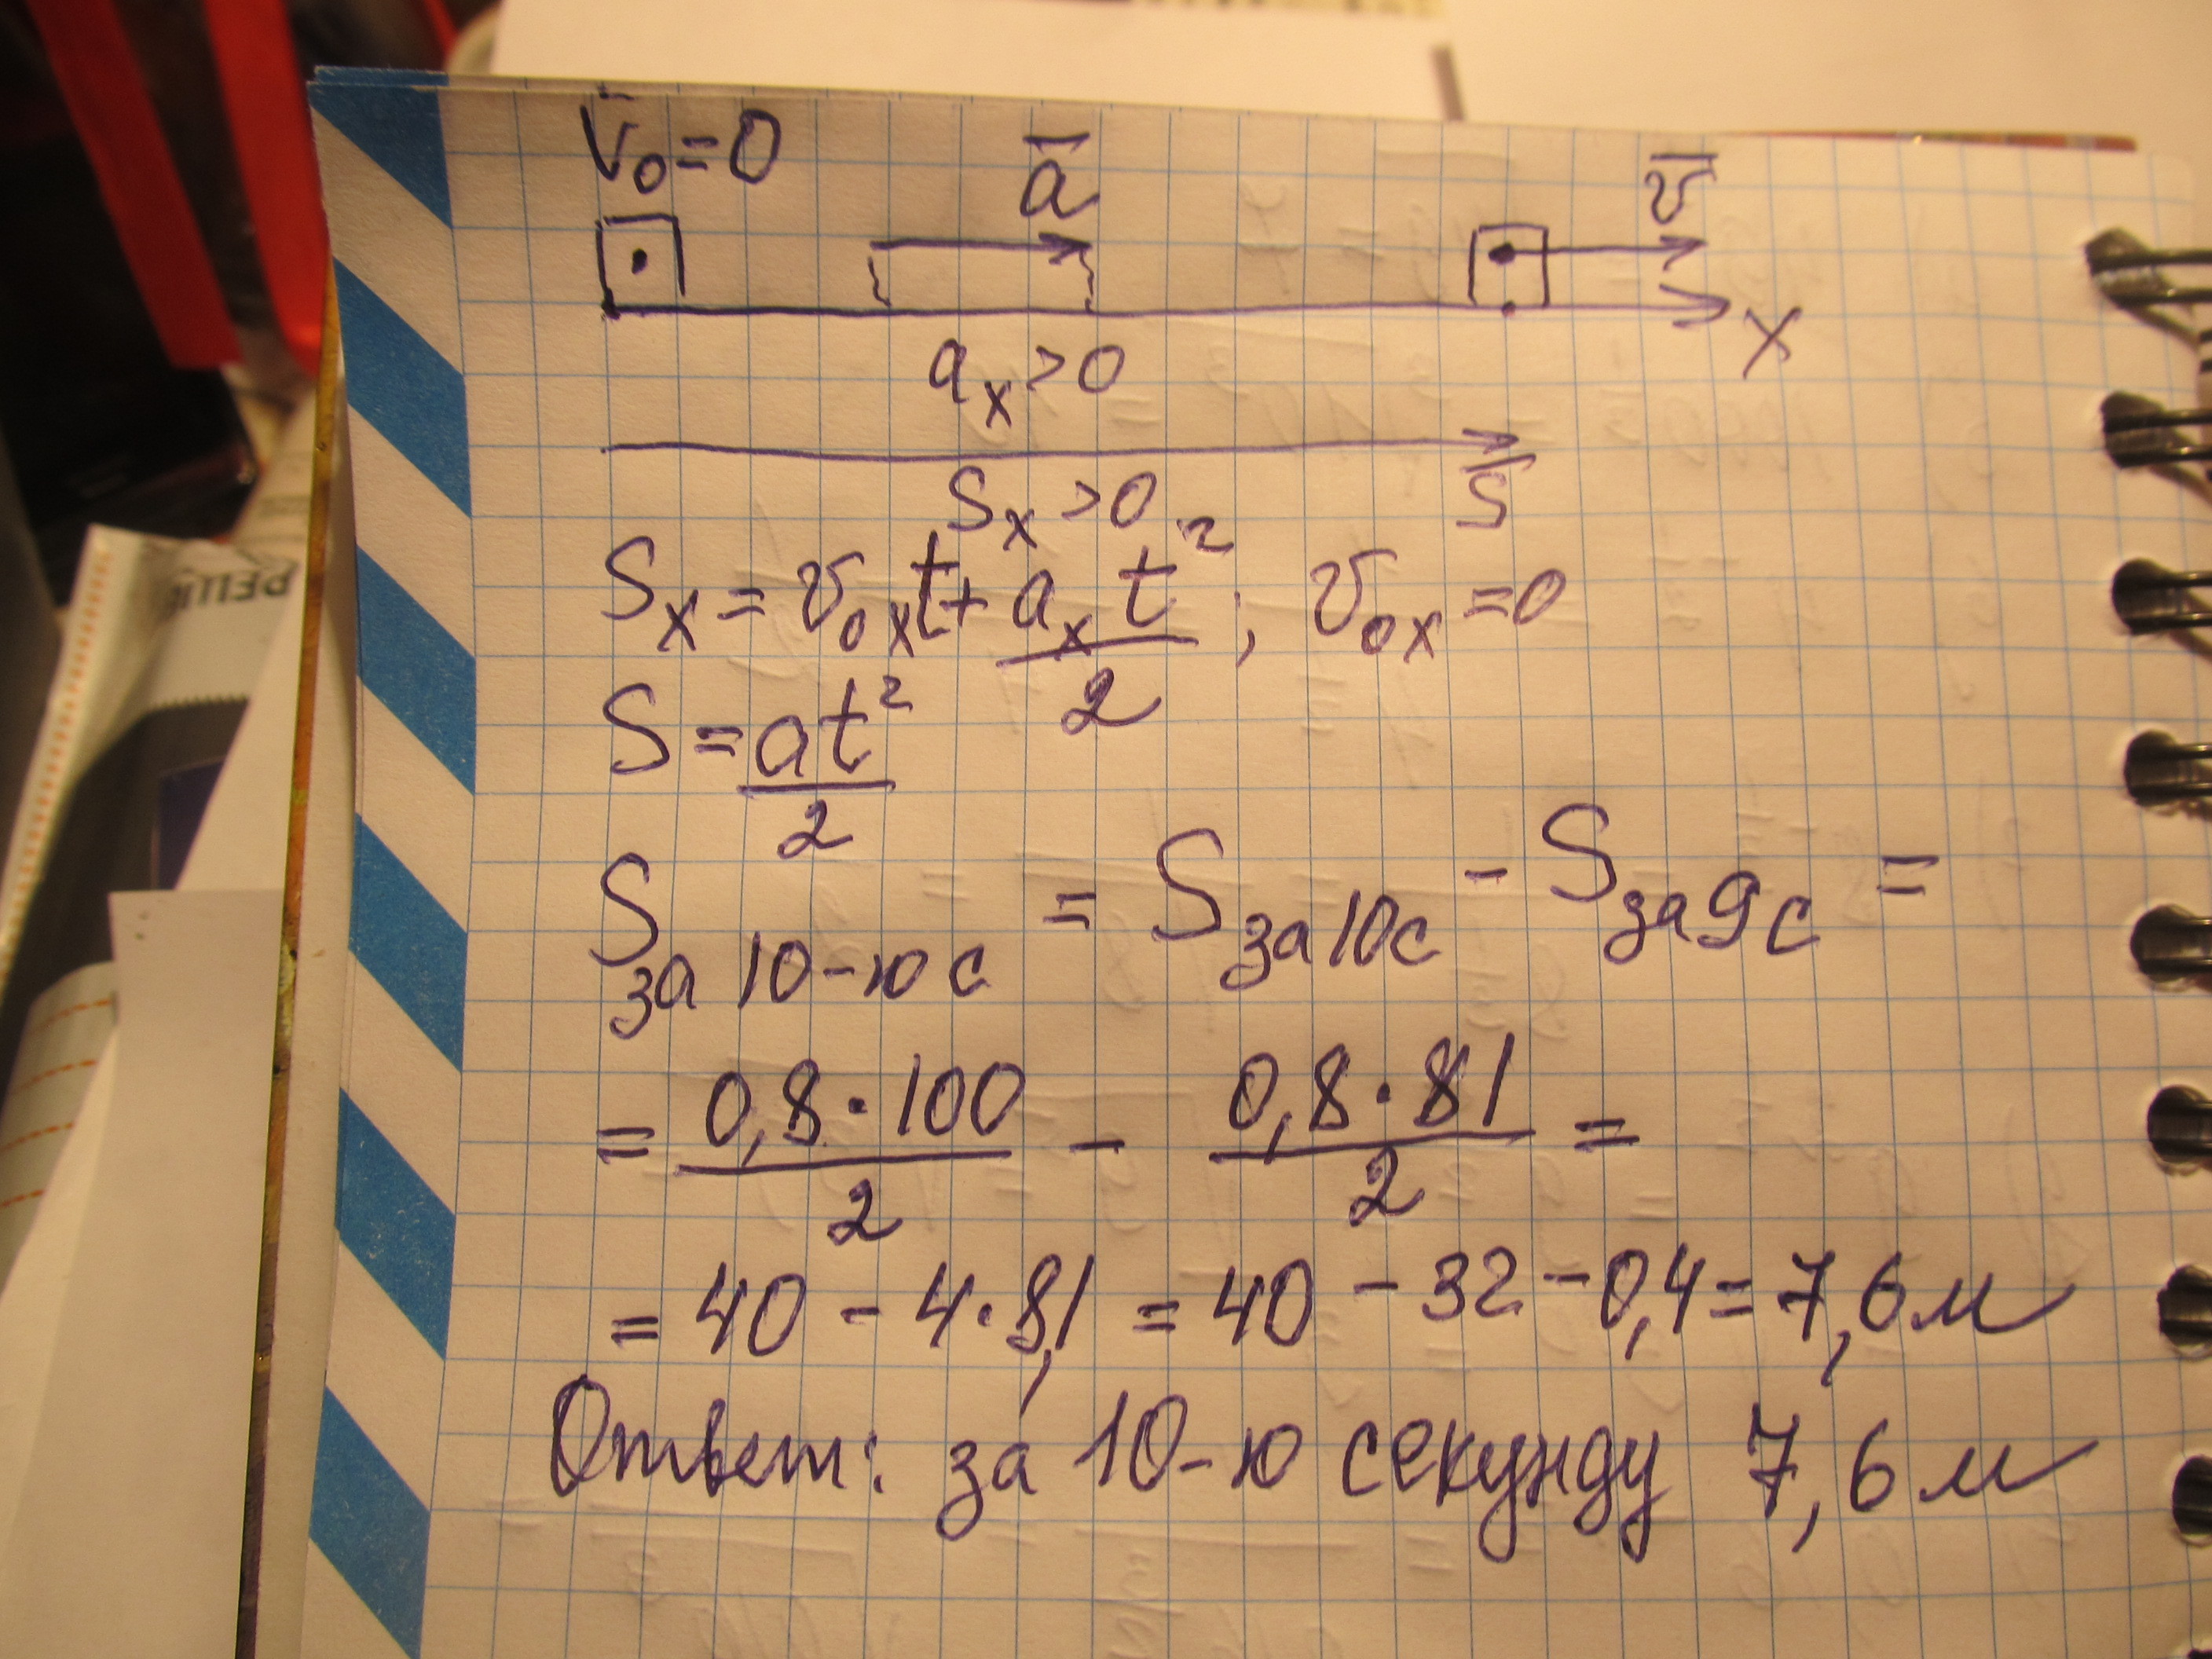 v̄₀=0
ā
v̄
x
aₓ>0
Sₓ>0
S̄
Sₓ = v₀ₓt + aₓt²/2 ; v₀ₓ=0
S = at²/2
S за 10-ю с = S за 10с - S за 9с =
= 0,8·100/2 - 0,8·81/2 =
= 40 - 4·8,1 = 40 - 32 - 0,4 = 7,6 м
Ответ: за 10-ю секунду 7,6 м